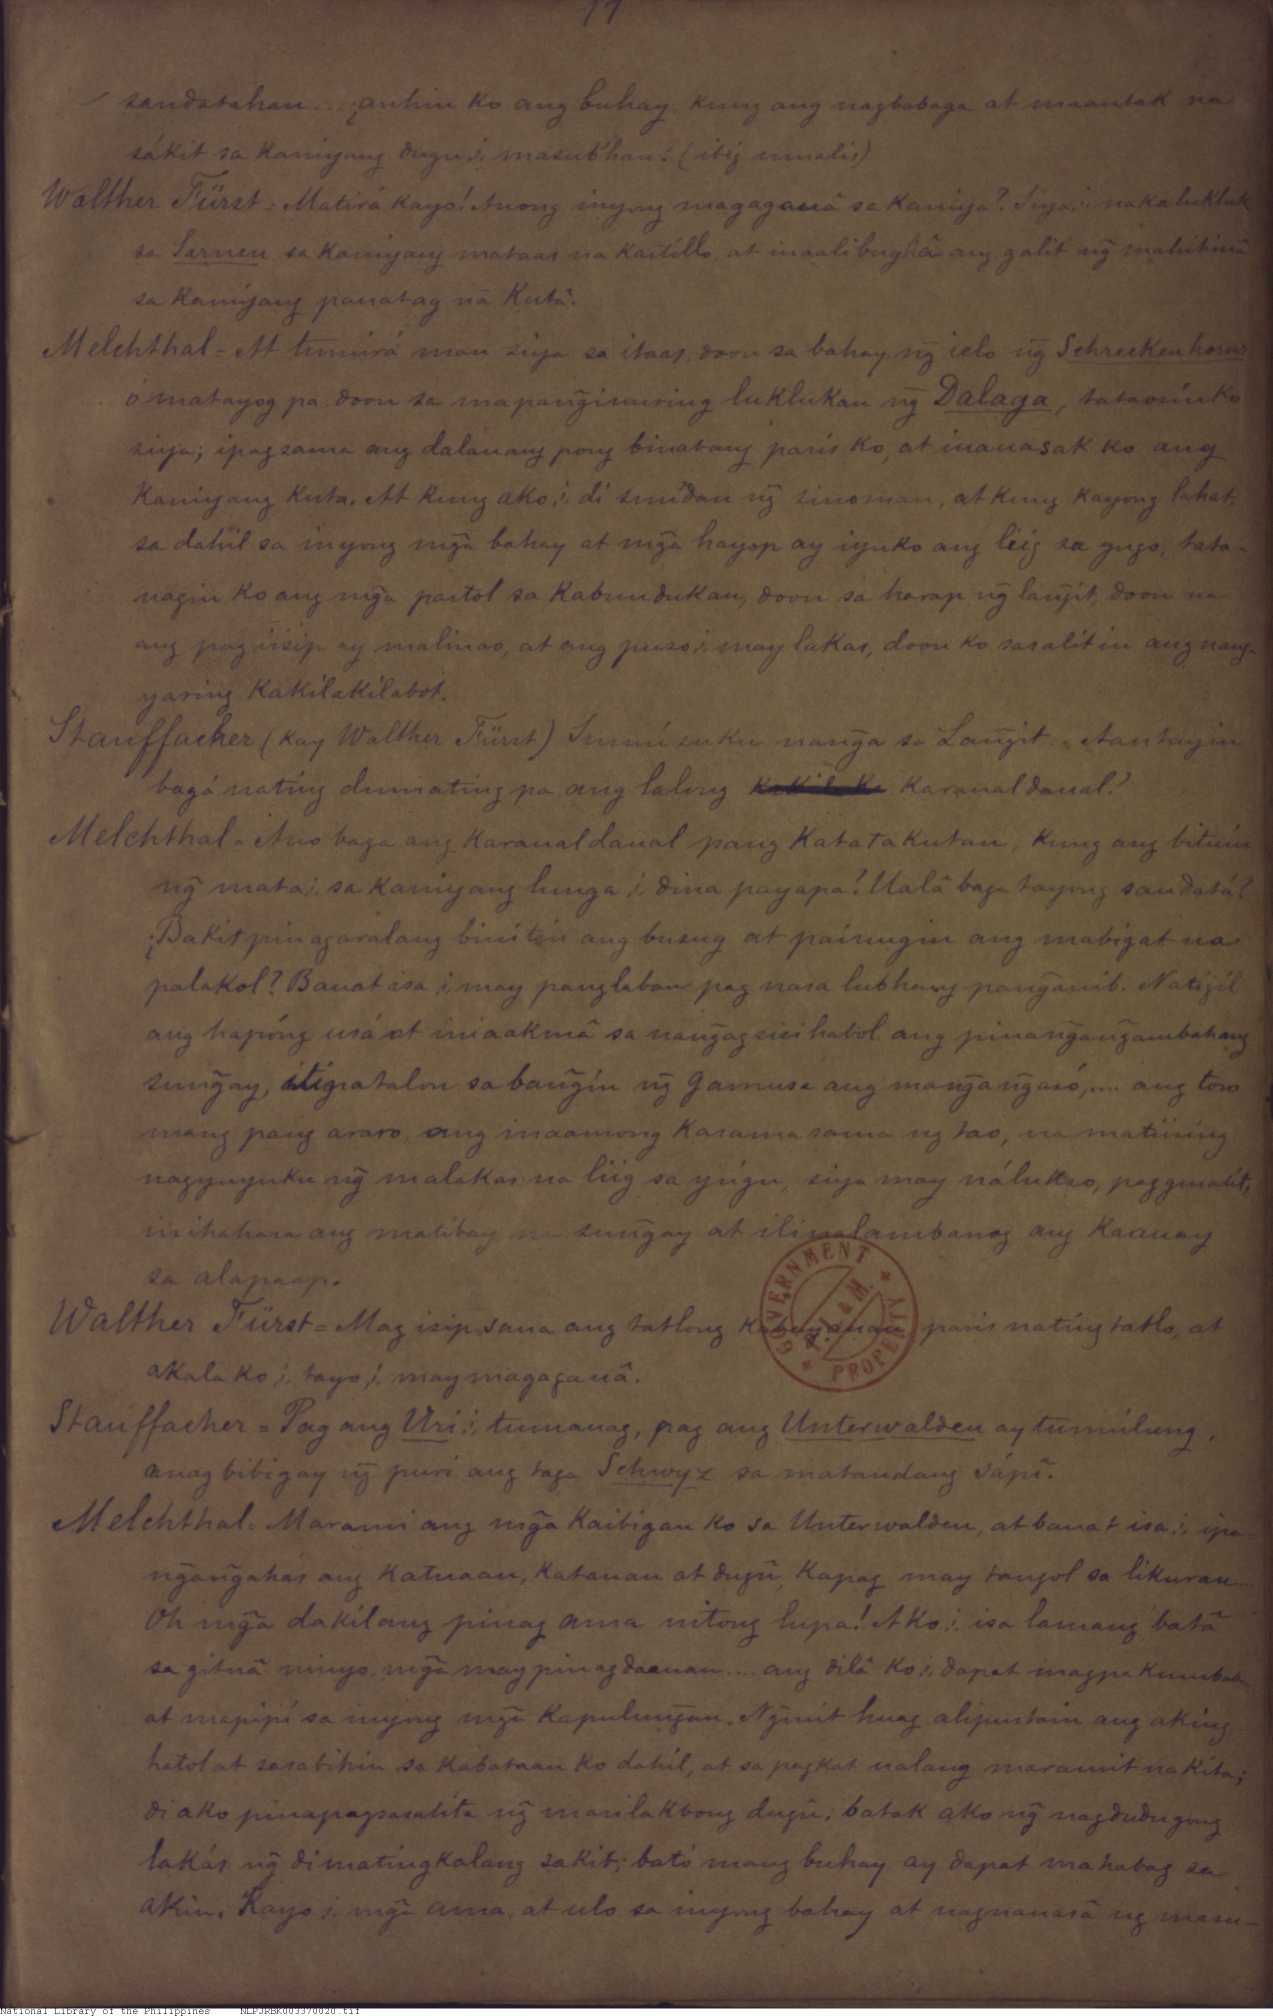 17
sandatahan .... ¿anhin ko ang buhay kung ang nagbabaga at maantak na
sákit sa kaniyang dugu,i, masubhan? (ibig umalis)
Walther Fürst = Matirá kayo! Anong inyong magagauâ sa kaniya? Siya,i, nakalukluk
sa Sarnen sa kaniyang mataas na kastillo at inaalibughâ ang galit ng̃ mahihinâ
sa kaniyang panatag na kutâ.
Melchthal = At tumirá man siya sa itaas, doon sa bahay ng̃ ielo ng̃ Schreckenhorns
ó matayog pa doon sa mapang̃inuring luklukan ng̃ Dalaga, tataonín ko
siya; ipagsama ang dalauang pong binatang paris ko, at inauasak ko ang
kaniyang kuta. At kung ako,i, di sundan ng̃ sinoman, at kung kayong lahat,
sa dahil sa inyong mg̃a bahay at mg̃a hayop ay iyuko ang leig sa yugo, tata-
uagin ko ang mg̃a pastol sa kabundukan, doon sa harap ng̃ lang̃it, doon na
ang pag iisip ay malinao, at ang puso,i, may lakas, doon ko sasalitin ang nang-
yaring kakilakilabot.
Stauffacher (kay Walther Fürst) Sumúsuku nang̃a sa Lang̃it. Aantayin
bagá natíng dumatíng pa ang lalong karaualdaual?
Melchthal = Ano baga ang karaualdaual pang katatakutan, kung ang bituín
ng̃ mata,i, sa kaniyang lunga,i, dina payapa? Ualâ baga tayong sandatá?
¿Bakit pinagaralang binitin ang busug at painugin ang mabigat na
palakol? Bauat isa,i, may panglaban pag nasa lubhang pang̃anib. Natigíl
ang hapóng usá at iniaakmâ sa nang̃agsisihabol ang pinang̃ang̃ambahang
sung̃ay, itinatalon sa bang̃ín ng̃ gamusa ang mang̃ang̃asó,.... ang toro
mang pang araro, ang inaamong kasama sama ng tao, na matiising
nagyuyuku ng̃ malakas na liig sa yúgu, siya may nálukso, pag ginalit,
inihahasa ang matibay na sung̃ay at ilinalambanog ang kaauay
sa alapaap.
Walther Fürst = Mag isip sana ang tatlong paris natíng tatlo, at
akala ko,i, tayo,i, may magagauâ.
Stauffacher = Pag ang Uri,i, tumauag, pag ang Unterwalden ay tumúlung,
auag bibigay ng̃ puri ang taga Schwyz sa matandang sápi.
Melchthal = Marami ang mg̃a kaibigan ko sa Unterwalden, at bauat isa,i, ipa
ng̃ang̃ahás ang katuaan, katauan at dugû, kapag may tangol sa likuran ....
Oh mg̃a dakilang pinag ama nitong lupa! Ako,i, isa lamang batâ
sa gitnâ ninyo mg̃a may pinagdaanan .... ang dilâ ko,i, dapat magpakumbabâ
at mapipí sa inyong mg̃a kapulung̃an. Ng̃unit huag alipustain ang aking
hatol at sasabihin sa kabataan ko dahil, at sa pagkat ualang maramit nakita;
di ako pinapagsasalita ng̃ masilakbong dugû; batak ako ng̃ nagdudugong
lakás ng̃ dimatingkalang sakit; bató mang buhay ay dapat mahabag sa
akin. Kayo,i, mg̃a ama, at ulo sa inyong bahay at nagnanasâ ng masu-
GOVERNMENT PROPERTY
P. L. & M.
National Library of the Philippines NLPJRBK003370020.tif